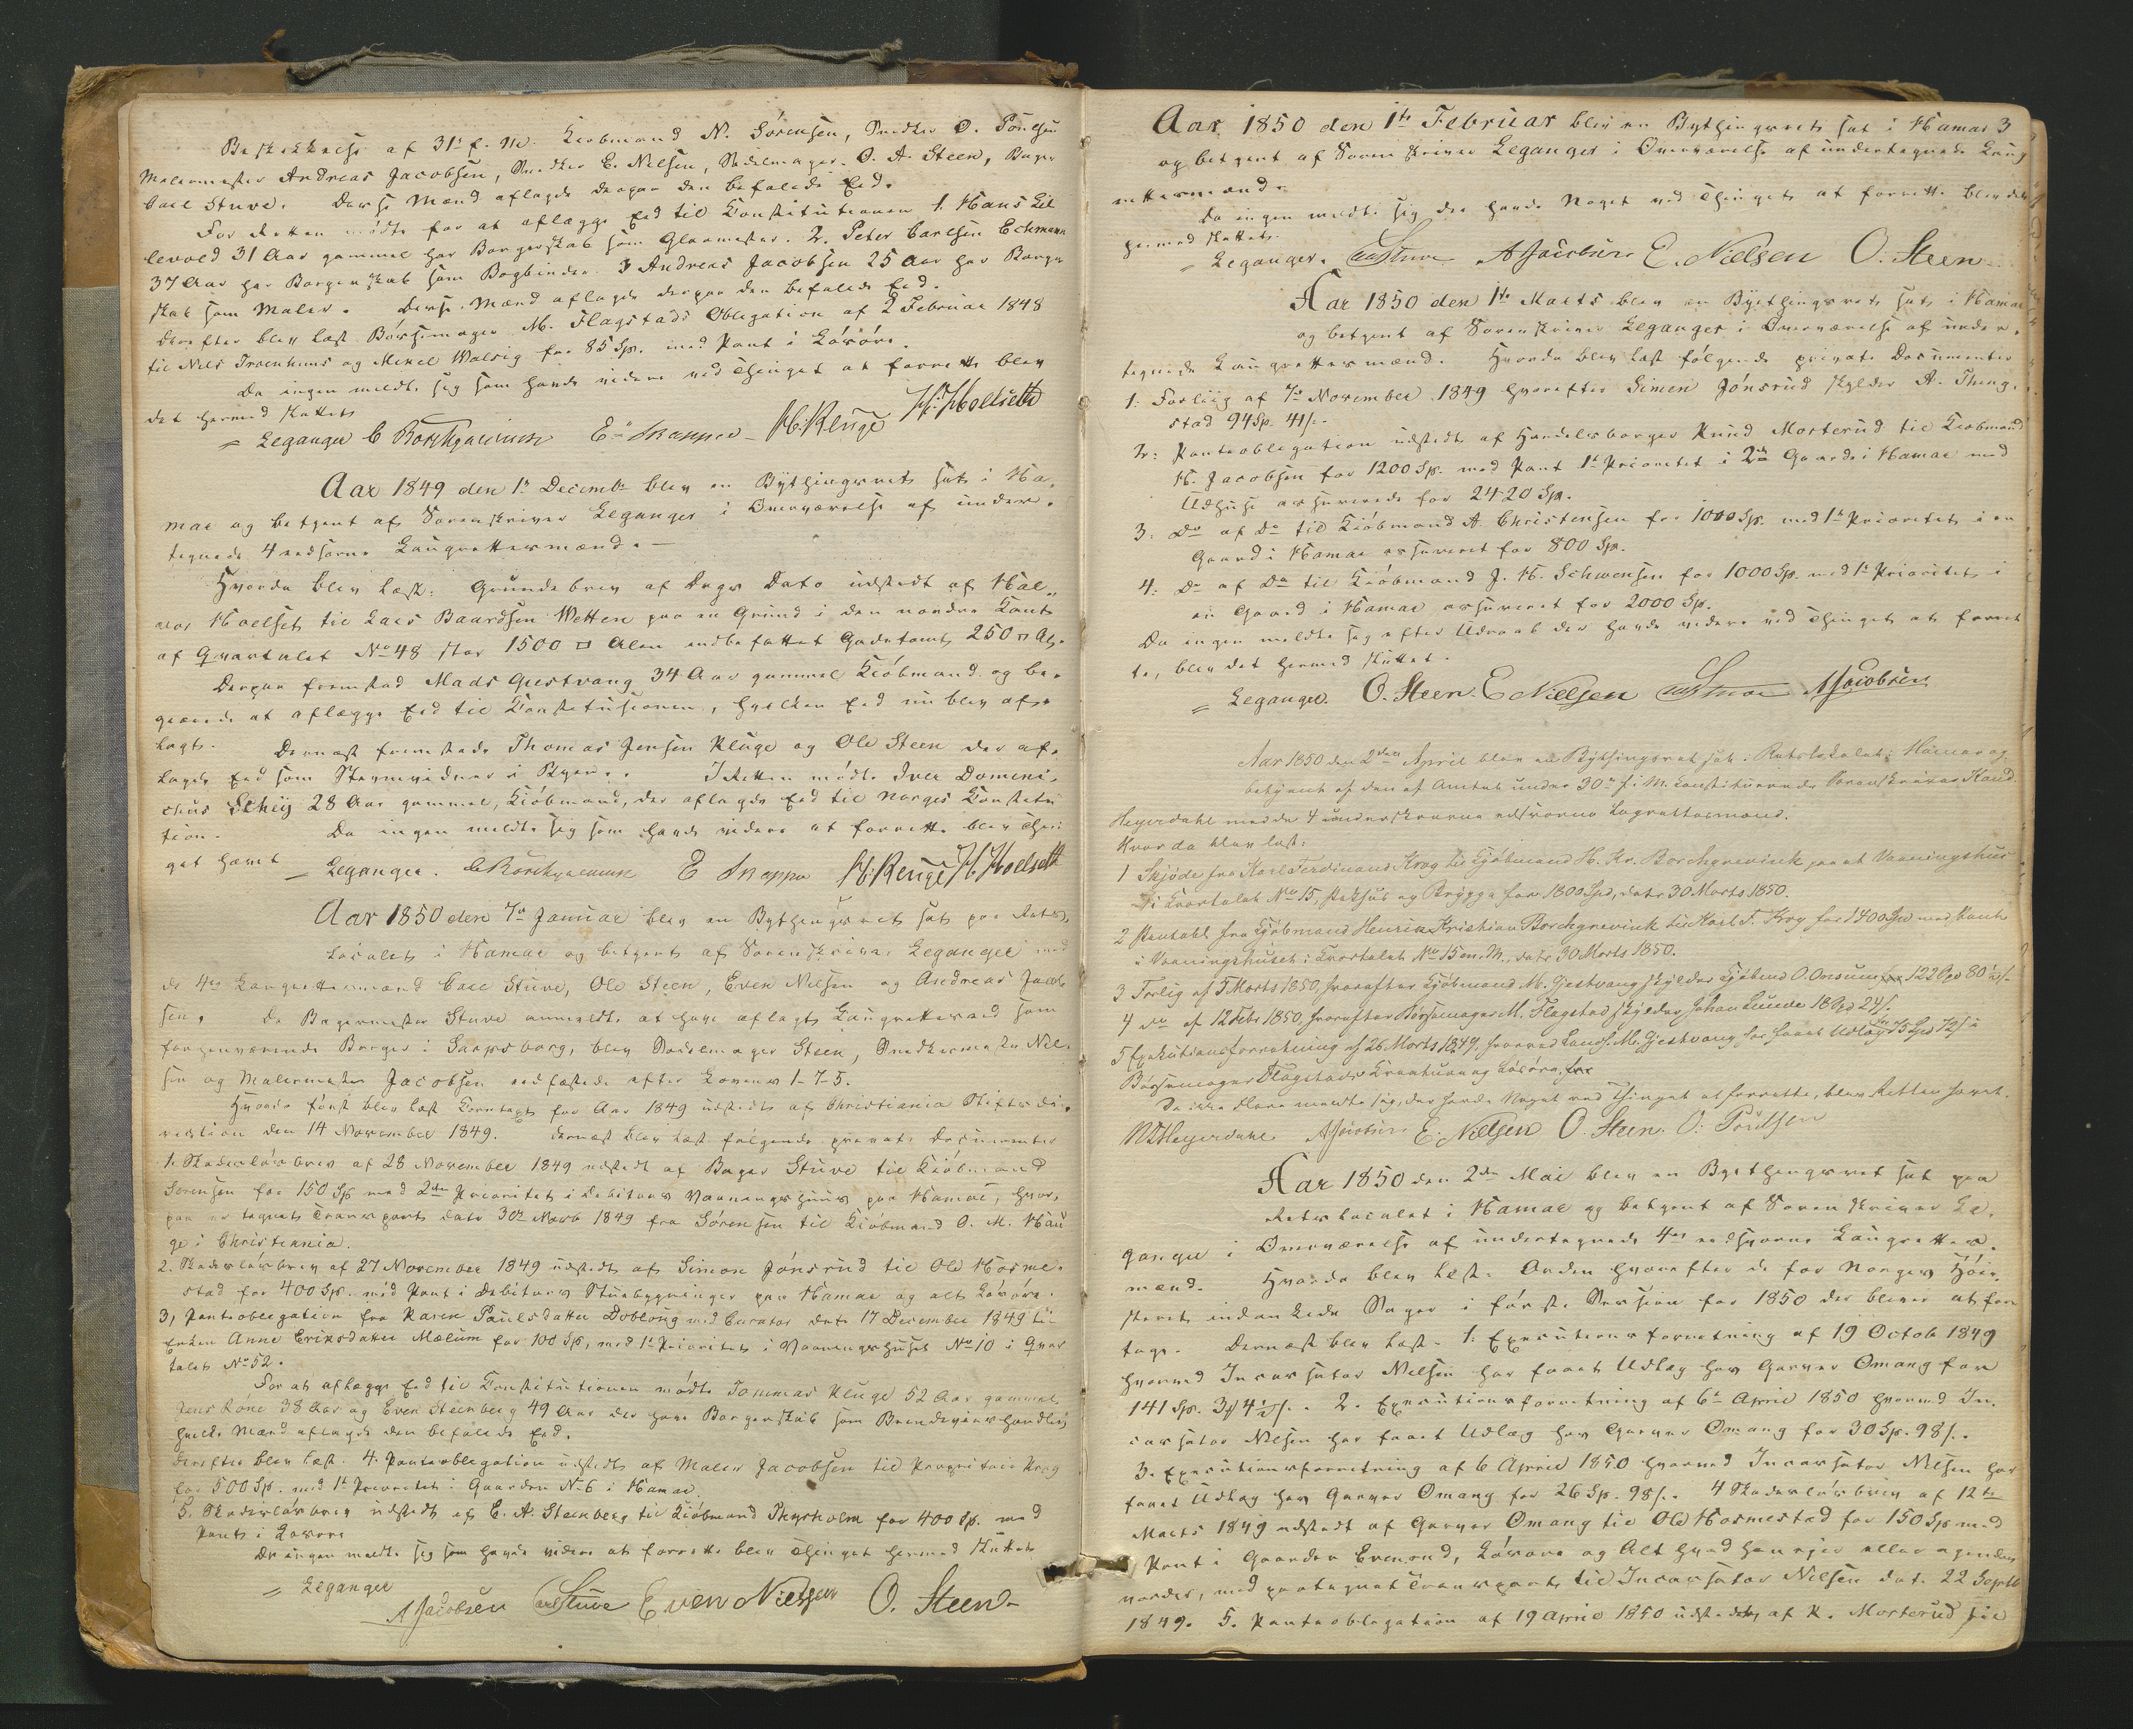 Beskikkelse af 31te f. M. Kiøbmand N. Sørensen, Snedker O. Poulsen
Malermester Andreas Jacobsen, Snedker E. Nilsen, Sadelmager O. A. Steen, Bager
Carl Stuve. Disse Mænd aflagde derpaa den befalede Eed.
For Retten mødte for at aflægge Eed til Constitutionen 1. Hans Lil
levold 31 Aar gammel har Borgerskab som Glarmester. 2. Peter Carlsen Eckmann
37 Aar har Borgerskab som Bogbinder. 3 Andreas Jacobsen 25 Aar har Borger
skab som Maler. Disse Mænd aflagde derpaa den befalede Eed.
Derefter blev læst Bøssemager M. Flagstads Obligation af 2 Februar 1848
til Nils Troenhuus og Mikel Walsig for 85 Sp. med Pant i Løsøre.
Da ingen meldte sig som havde videre ved Thinget at forrette blev
det hermed sluttet
= Leganger C Borchgrevink E. Skappel H. Renge H. Hoelseth
Aar 1849 den 1te Decembr blev en Bythingsret sat i Ha-
mar og betjent af Sorenskriver Leganger i Overværelse af under-
tegnede 4 eedsorne Laugrettesmænd. —
Hvorda blev læst: Grundebrev af Dags Dato udstedt af Hal-
vor Hoelset til Lars Baardsen Wetten paa en Grund i den nordre Kant
af Qvartalet No 48 stor 1500 □ Alen indbefattet Gadetomt 250 □ Al.
Derpaa fremstod Mads Giestvang 34 Aar gammel Kiøbmand og be-
gjærede at aflægge Eed til Constitusionen, hvilken Eed nu blev af-
lagt. Dernæst fremstode Thomas Jensen Kluge og Ole Steen der af-
lagde Eed som Stevnevidner i Byen. I Retten mødte Iver Domini-
chus Schiij 28 Aar gammel, Kiøbmand, der aflagde Eed til Norges Constitu
tion. Da ingen meldte sig som havde videre at forrette blev Thin
get hævet = Leganger. C Borchgrevink E Skappel H. Renge H. Hoelseth
Aar 1850 den 7de Januar blev en Bythingsret sat paa Rets-
localet i Hamar og betjent af Sorenskriver Leganger med
de 4re Laugrettesmænd Carl Stuve, Ole Steen, Even Nilsen og Andreas Jacob
sen. Da Bagermester Stuve anmeldte at have aflagt Laugrettesed som
forhenværende Borger i Sarpsborg, blev Sadelmager Steen, Snedkermester Nil-
sen og Malermester Jacobsen eedfæstede efter Lovens 1-7-5.
Hvorda først blev læst Korntaxt for Aar 1849 udstedt af Christiania Stiftsdi-
rection den 14 November 1849. Dernæst blev læst følgende private Documenter
1. Skadesløsbrev af 28 November 1849 udstedt af Bager Stuve til Kiøbmand
Sørensen for 150 Sp med 2den Prioritet i Debitors Vaaningshuus paa Hamar, hvor-
paa er tegnet Transport dat. 30te Novb 1849 fra Sørensen til Kiøbmand O. M. Hau
ge i Christiania.
2. Skadesløsbrev af 27 November 1849 udstedt af Simen Jønsrud til Ole Hosme-
stad for 400 Sp. med Pant i Debitors Stuebygninger paa Hamar og alt Løsøre.
3, Panteobligation fra Karen Paulsdatter Doblong med Curator dat. 17 December 1849 til
Enken Anne Eriksdatter Mælum for 100 Sp, med 1te Prioritet i Vaaningshuset No 10 i Qvar
talet No 52.
For at aflægge Eed til Constitutionen mødte Tommas Kluge 52 Aar gammel
Jens Röne 38 Aar og Even Steenberg 49 Aar der have Borgerskab som Brendeviinshandler
hvilke Mænd aflagde den befalede Eed.
Derefter blev læst. 4. Panteobligation udstedt af Maler Jacobsen til Proprietair Krog
for 500 Sp. med 1te Prioritet i Gaarden No 6 i Hamar.
5. Skadesløsbrev udstedt af E. A. Steenberg til Kiøbmand Thyrholm for 400 Sp. med
Pant i Løsøre
Da ingen meldte sig som havde videre at forrette blev Thinget hermed sluttet
= Leganger
A Jacobsen Carl Stuve Even Nielsen O. Steen
Aar 1850 den 1te Februar blev en Bythingsret sat i Hamar 3
og betjent af Sorenskriver Leganger i Overværelse af undertegnede Laug
rettesmænd.
Da ingen meldte sig der havde Noget ved Thinget at forrette blev det
hermed sluttet.
= Leganger. Carl Stuve A Jacobsen E. Nielsen O. Steen
Aar 1850 den 1te Marts blev en Bythingsret sat i Hamar
og betjent af Sorenskriver Leganger i Overværelse af under-
tegnede Laugrettesmænd. Hvorda blev læst følgende private Documenter
1. Forliig af 7de November 1849 hvorefter Simen Jönsrud skylder A. Thing-
stad 94 Sp. 41 s.
2. Panteobligation udstedt af Handelsborger Knud Mosterud til Kiøbmand
H. Jacobsen for 1200 Sp. med Pant 1te Prioritet i 2de Gaarde i Hamar med
Udhuse assurerede for 2420 Sp.
3. Do af Do til Kiøbmand A. Christensen for 1000 Sp. med 1te Prioritet i en
Gaard i Hamar assureret for 800 Sp.
4. Do af Do til Kiøbmand J. H. Schwensen for 1000 Sp. med 1te Prioritet i
en Gaard i Hamar assureret for 2000 Sp.
Da ingen meldte sig efter Udraab der havde videre ved Thinget at forret
te, blev det hermed sluttet.
= Leganger. O. Steen. E Nielsen Carl Stuve A Jacobsen
Aar 1850 den 2den April blev en Bythingsret sat i Retslokalet i Hamar og
betjent af den af Amtet under 30te f. M. konstituerede Sorenskriver Kand
Heyerdahl med de 4 underskrevne edsvorne Lagrettesmænd.
Hvorda blev læst:
1 Skjøde fra Karl Ferdinand Krog til Kjøbmand H. Kr. Borchgrevink paa et Vaaningshus
i Kvartalet No 15, Pakhus og Brygge for 1800 Spd, dat. 30 Marts 1850.
2 Panteobl. fra Kjøbmand Henrik Kristian Borchgrevink til Karl F. Krog for 1400 Spd med Pant
i Vaaningshuset i Kvartalet No 15 m. M., dat. 30 Marts 1850.
3 Forlig af 5 Marts 1850, hvorefter Kjøbmand M. Gjestvang skylder Kjøbmd O. Onsum 122 Spd 80 s.
4 do af 12 Febr 1850, hvorefter Børsemager M. Flagstad skylder Johan Lunde 18 Spd 24 s.
5 Exekutionsforretning af 26 Marts 1849, hvorved Landh. M. Gjestvang har faaet Udlæg for 15 Spd 72 s i
Børsemager Flagstads Kreaturer og Løsøre.
Da ikke Flere meldte sig, der havde Noget ved Thinget at forrette, blev Retten hævet.
N Heyerdahl A Jacobsen E. Nielsen O. Steen. O. Poulsen
Aar 1850 den 2den Mai blev en Bythingsret sat paa
Retslocalet i Hamar og betjent af Sorenskriver Le-
ganger i Overværelse af undertegnede 4re eedsvorne Laugrettes-
mænd. Hvorda blev læst. Orden hvorefter de for Norges Høie-
steret indankede Sager i første Session for 1850 der bliver at fore
tage. Dernæst blev læst. 1. Executionsforretning af 19 Octob 1849
hvorved Incassator Nilsen har faaet Udlæg hos Garver Omang for
141 Sp. 3 # 4 ½ s. 2. Executionsforretning af 6te April 1850 hvorved In-
cassator Nilsen har faaet Udlæg hos Garver Omang for 30 Sp. 98 s.
3. Executionsforretning af 6 April 1850 hvorved Incassator Nilsen har
faaet Udlæg hos Garver Omang for 26 Sp. 98 s. 4 Skadesløsbrev af 12te
Marts 1849 udstedt af Garver Omang til Ole Hosmestad for 150 Sp med
Pant i Gaarden Evensud, Løsøre og Alt hvad han ejer eller ejendes
vorder, med paategnet Transport til Incassator Nilsen dat. 22 Septb
1849. 5. Panteobligation af 19 April 1850 udstedt af K. Mosterud til